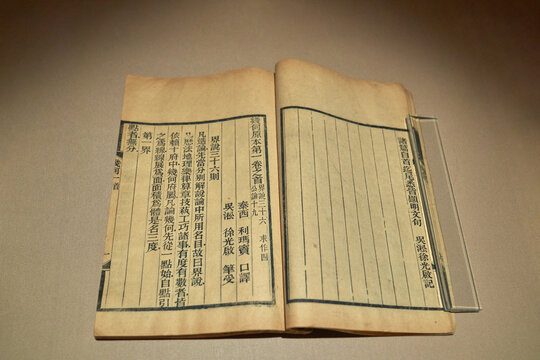 諸題自首迄尾悉皆顯明文句
吳淞徐光啟記
幾何原本第一卷之首 界說三十六 求作四
公論十九
泰西 利瑪竇 口譯
吳淞 徐光啟 筆受
界說三十六則
凡造論先當分別解說論中所用名目故曰界說
凡歷法地理樂律算章技藝工巧諸事有度有數者皆
依賴十府中幾何府屬凡論幾何先從一點始自點引
之爲線線展爲面面積爲體是名三度
第一界
點者無分